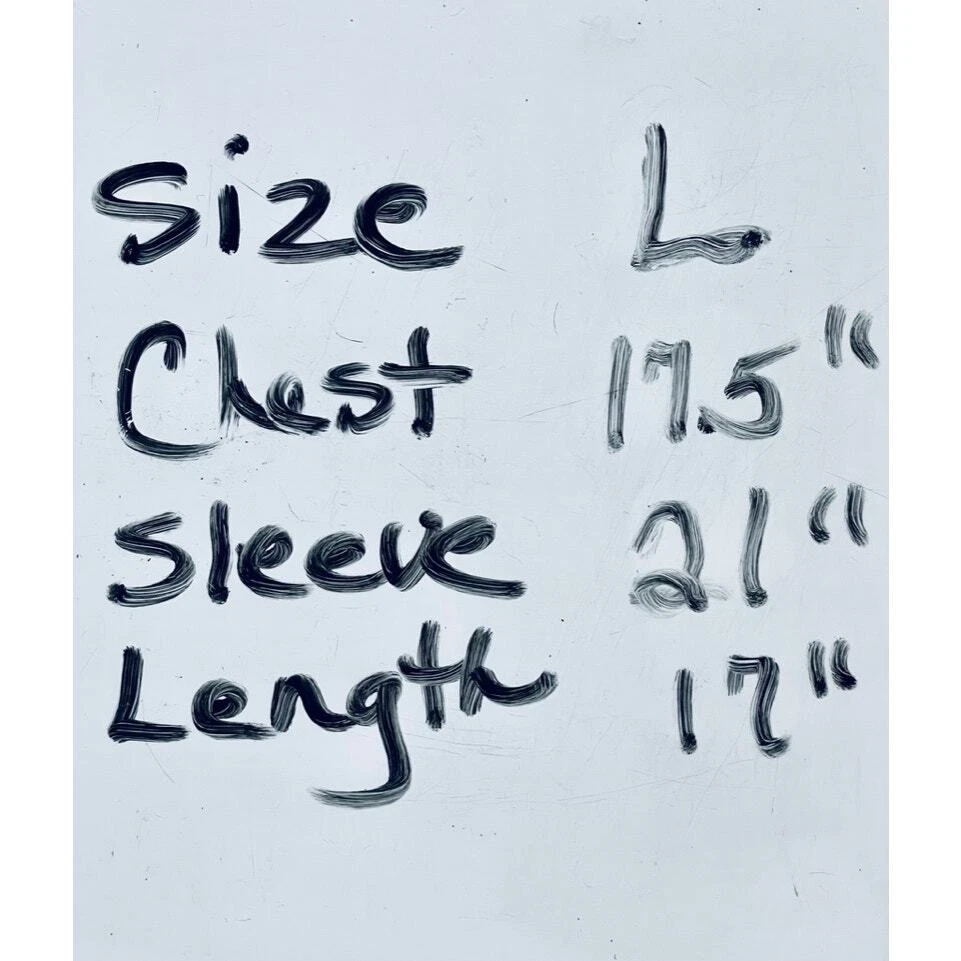 Size L.
Chest 17.5"
Sleeve 21"
Length 17"